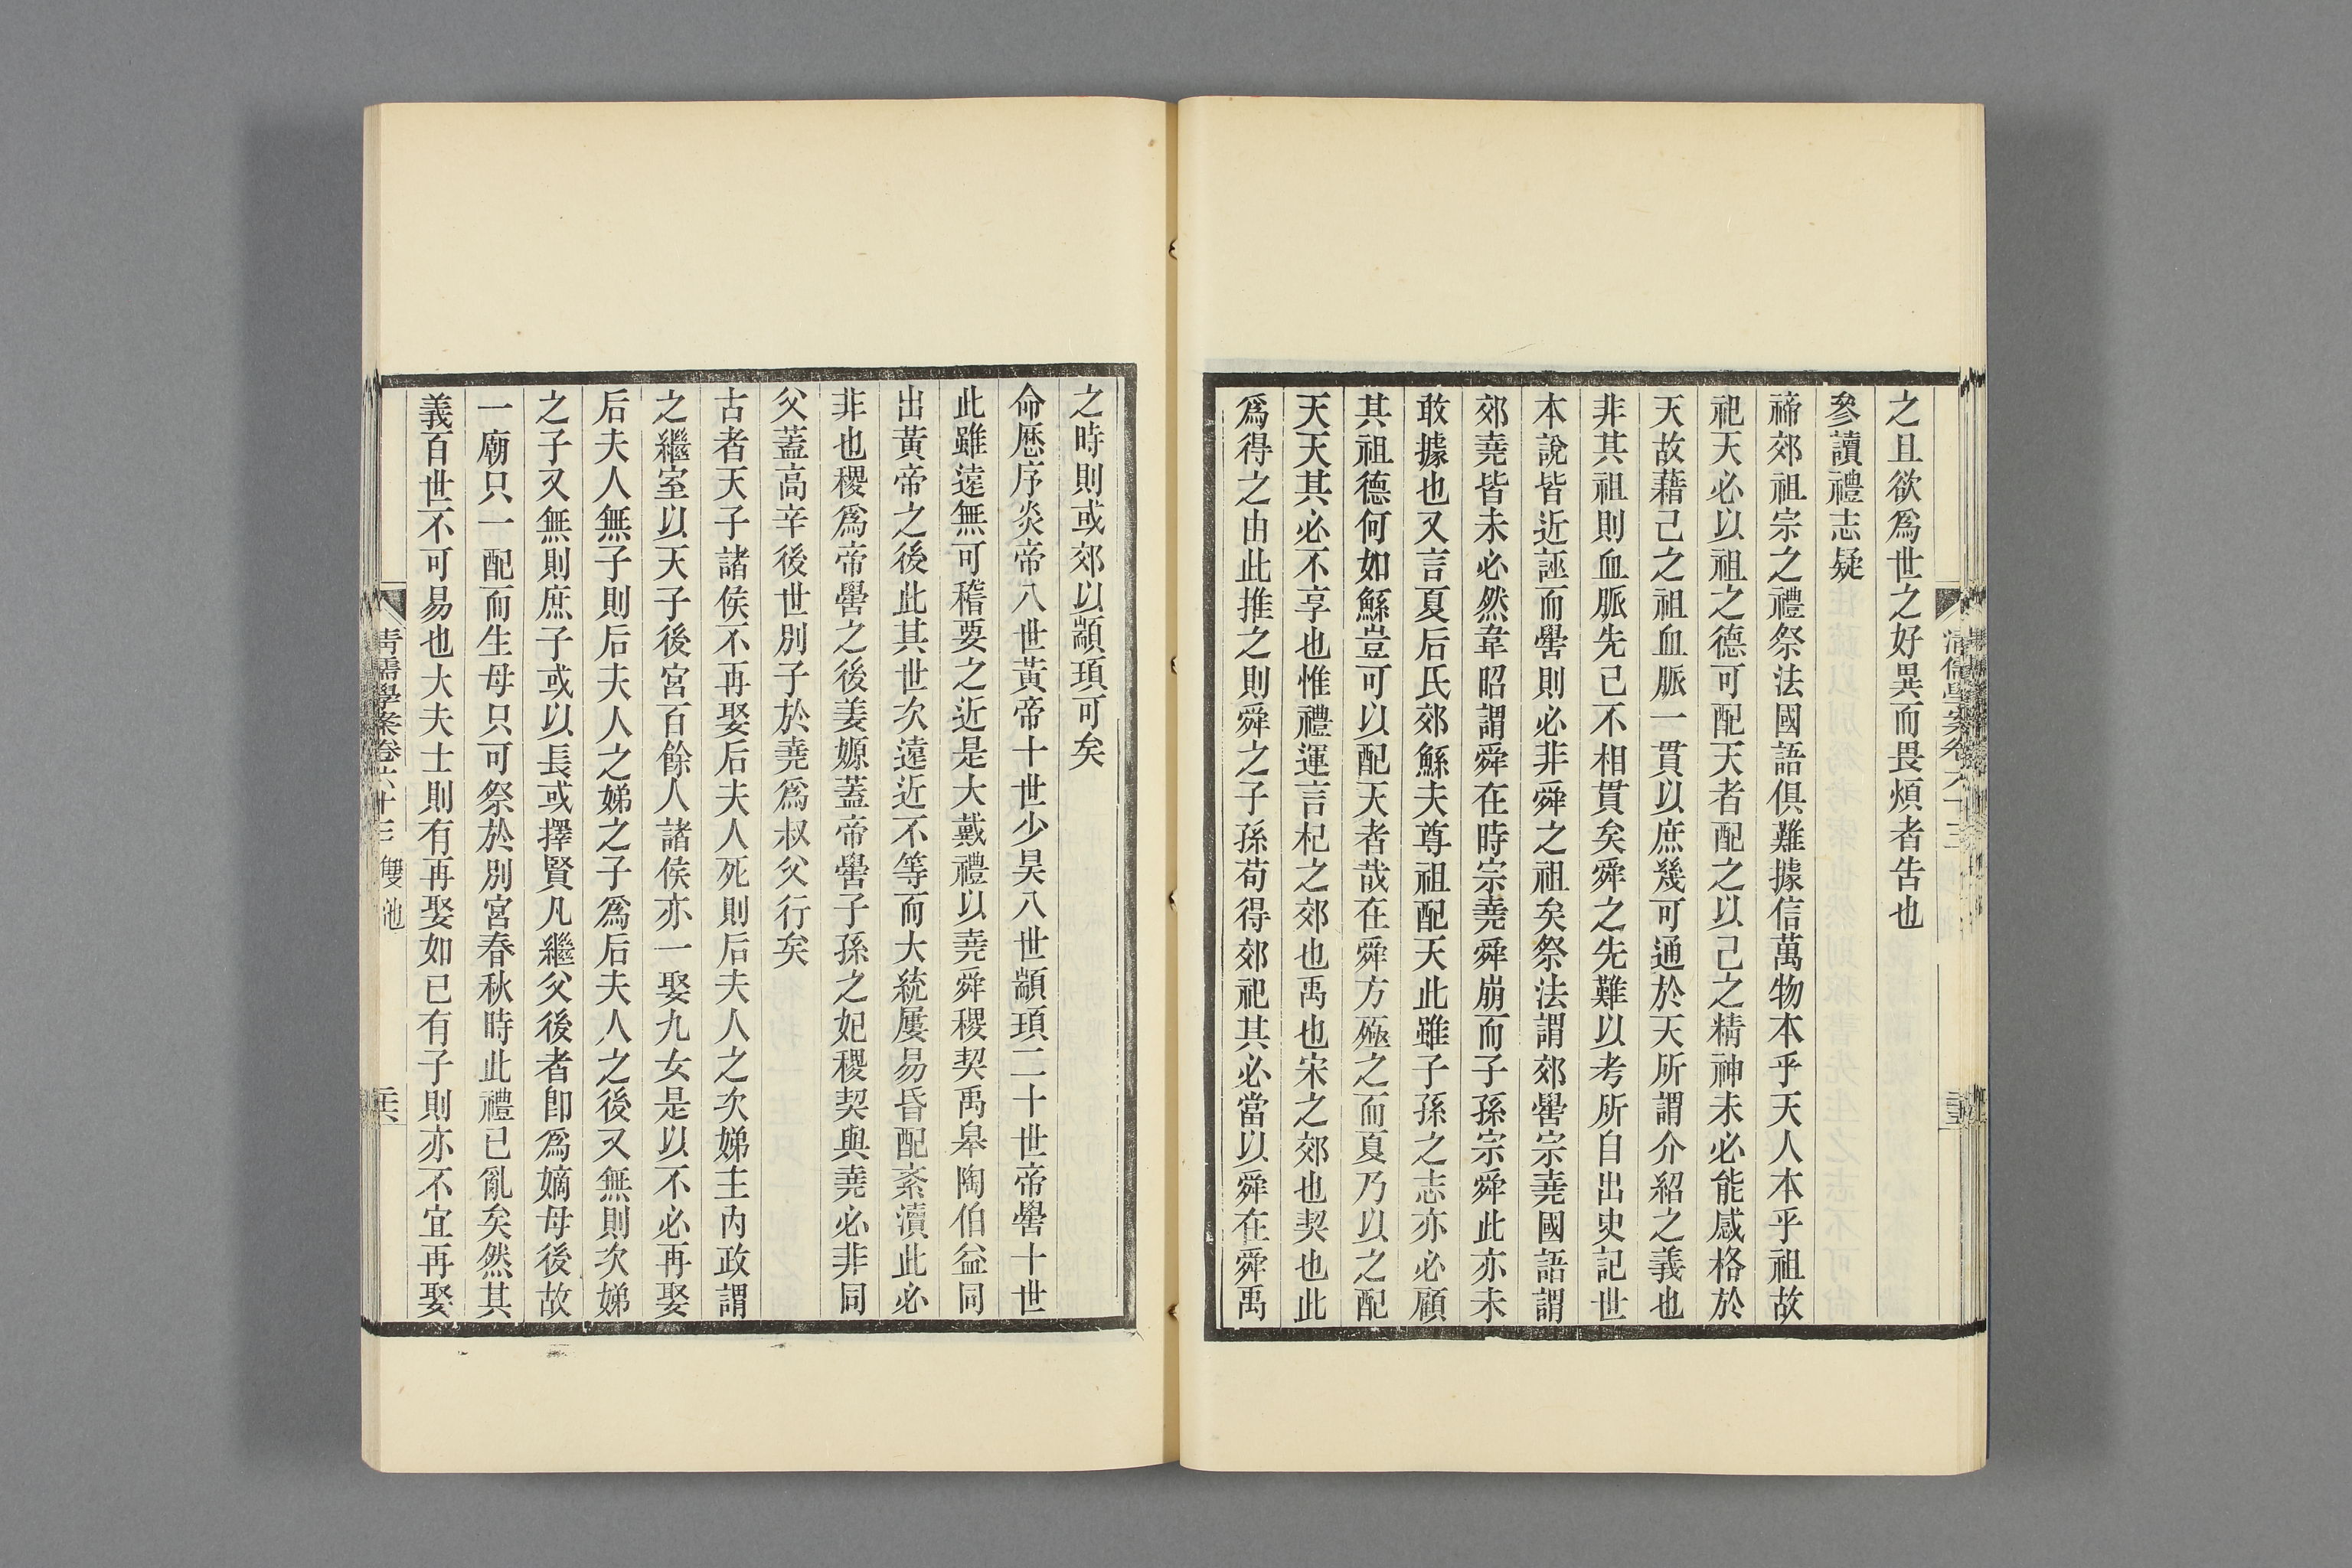 之且欲爲世之好異而畏煩者告也
參讀禮志疑
禘郊祖宗之禮祭法國語俱難據信萬物本乎天人本乎祖故
祀天必以祖之德可配天者配之以己之精神未必能感格於
天故藉己之祖血脈一貫以庶幾可通於天所謂介紹之義也
非其祖則血脈先已不相貫矣舜之先難以考所自出史記世
本說皆近誣而嚳則必非舜之祖矣祭法謂郊嚳宗堯國語謂
郊堯皆未必然韋昭謂舜在時宗堯舜崩而子孫宗舜此亦未
敢據也又言夏后氏郊鯀夫尊祖配天此雖子孫之志亦必顧
其祖德何如鯀豈可以配天者哉在舜方殛之而夏乃以之配
天天其必不享也惟禮運言杞之郊也禹也宋之郊也契也此
爲得之由此推之則舜之子孫苟得郊祀其必當以舜在舜禹
之時則或郊以顓頊可矣
命厯序炎帝八世黃帝十世少昊八世顓頊二十世帝嚳十世
此雖遠無可稽要之近是大戴禮以堯舜稷契禹皋陶伯益同
出黃帝之後此其世次遠近不等而大統屢易昏配紊瀆此必
非也稷爲帝嚳之後姜嫄蓋帝嚳子孫之妃稷契與堯必非同
父蓋高辛後世別子於堯爲叔父行矣
古者天子諸侯不再娶后夫人死則后夫人之次娣主內政謂
之繼室以天子後宮百餘人諸侯亦一娶九女是以不必再娶
后夫人無子則后夫人之娣之子爲后夫人之後又無則次娣
之子又無則庶子或以長或擇賢凡繼父後者卽爲嫡母後故
一廟只一配而生母只可祭於別宮春秋時此禮已亂矣然其
義百世不可易也大夫士則有再娶如已有子則亦不宜再娶
清儒學案卷六十三 雙池